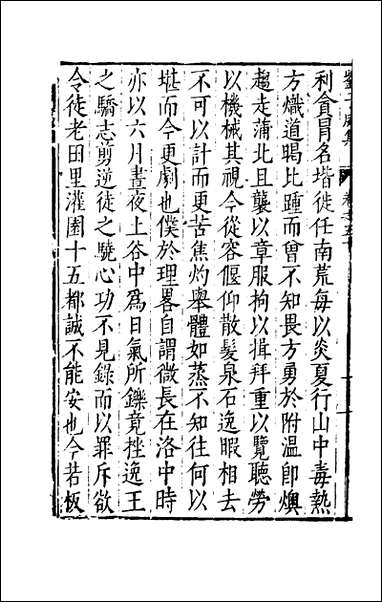 劉子威集 卷之五十
利貪冒名堦徙任南荒每以炎夏行山中毒熱
方熾道暍比踵而曾不知畏方勇於附溫即燠
趨走蒲北且襲以章服拘以揖拜重以覽聽勞
以機械其視今從容偃仰散髮泉石逸暇相去
不可以計而更苦焦灼舉體如蒸不知往何以
堪而今更劇也僕於理畧自謂微長在洛中時
亦以六月晝夜上谷中爲日氣所鑠竟挫逸王
之驕志剪逆徒之驍心功不見錄而以罪斥欲
令徒老田里灌園十五都誠不能安也今若